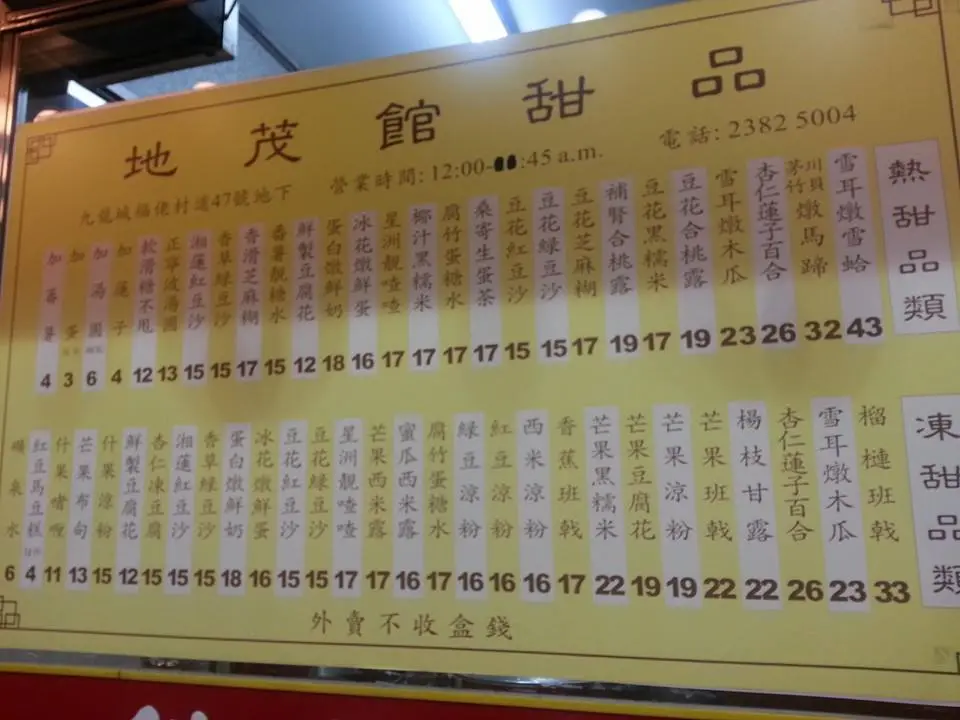 地茂館甜品
九龍城福佬村道47號地下
營業時間: 12:00-:45 a.m.
電話: 2382 5004
熱甜品類
雪耳燉雪蛤 43
川貝茅竹燉馬蹄 32
杏仁蓮子百合 26
雪耳燉木瓜 23
豆花合桃露 19
豆花黑糯米 17
補腎合桃露 19
豆花芝麻糊 17
豆花綠豆沙 15
豆花紅豆沙 15
桑寄生蛋茶 17
腐竹蛋糖水 17
椰汁黑糯米 17
星洲靚喳喳 17
冰花燉鮮蛋 16
蛋白燉鮮奶 18
鮮製豆腐花 12
番薯靚糖水 15
香滑芝麻糊 17
香草綠豆沙 15
湘蓮紅豆沙 15
正寧波湯圓 13
軟滑糖不甩 12
加蓮子 4
加湯圓 6
加蛋 3
加蕃薯 4
凍甜品類
榴槤班戟 33
雪耳燉木瓜 23
杏仁蓮子百合 26
楊枝甘露 22
芒果班戟 22
芒果涼粉 19
芒果豆腐花 19
芒果黑糯米 22
香蕉班戟 17
西米涼粉 16
紅豆涼粉 16
綠豆涼粉 16
腐竹蛋糖水 17
蜜瓜西米露 16
芒果西米露 17
星洲靚喳喳 17
豆花綠豆沙 15
豆花紅豆沙 15
冰花燉鮮蛋 16
蛋白燉鮮奶 18
香草綠豆沙 15
湘蓮紅豆沙 15
杏仁凍豆腐 15
鮮製豆腐花 12
什果涼粉 15
芒果布甸 13
什果啫喱 11
紅豆馬豆糕 4
礦泉水 6
外賣不收盒錢